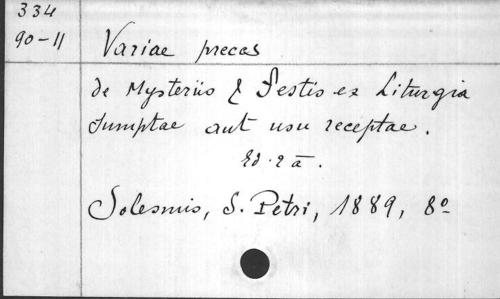 334
90-11
Variae preces
de Mysteriis & Festis ex Liturgia
sumptae aut usu receptae.
Ed. 2ā.
Solesmis, S. Petri, 1889, 8º